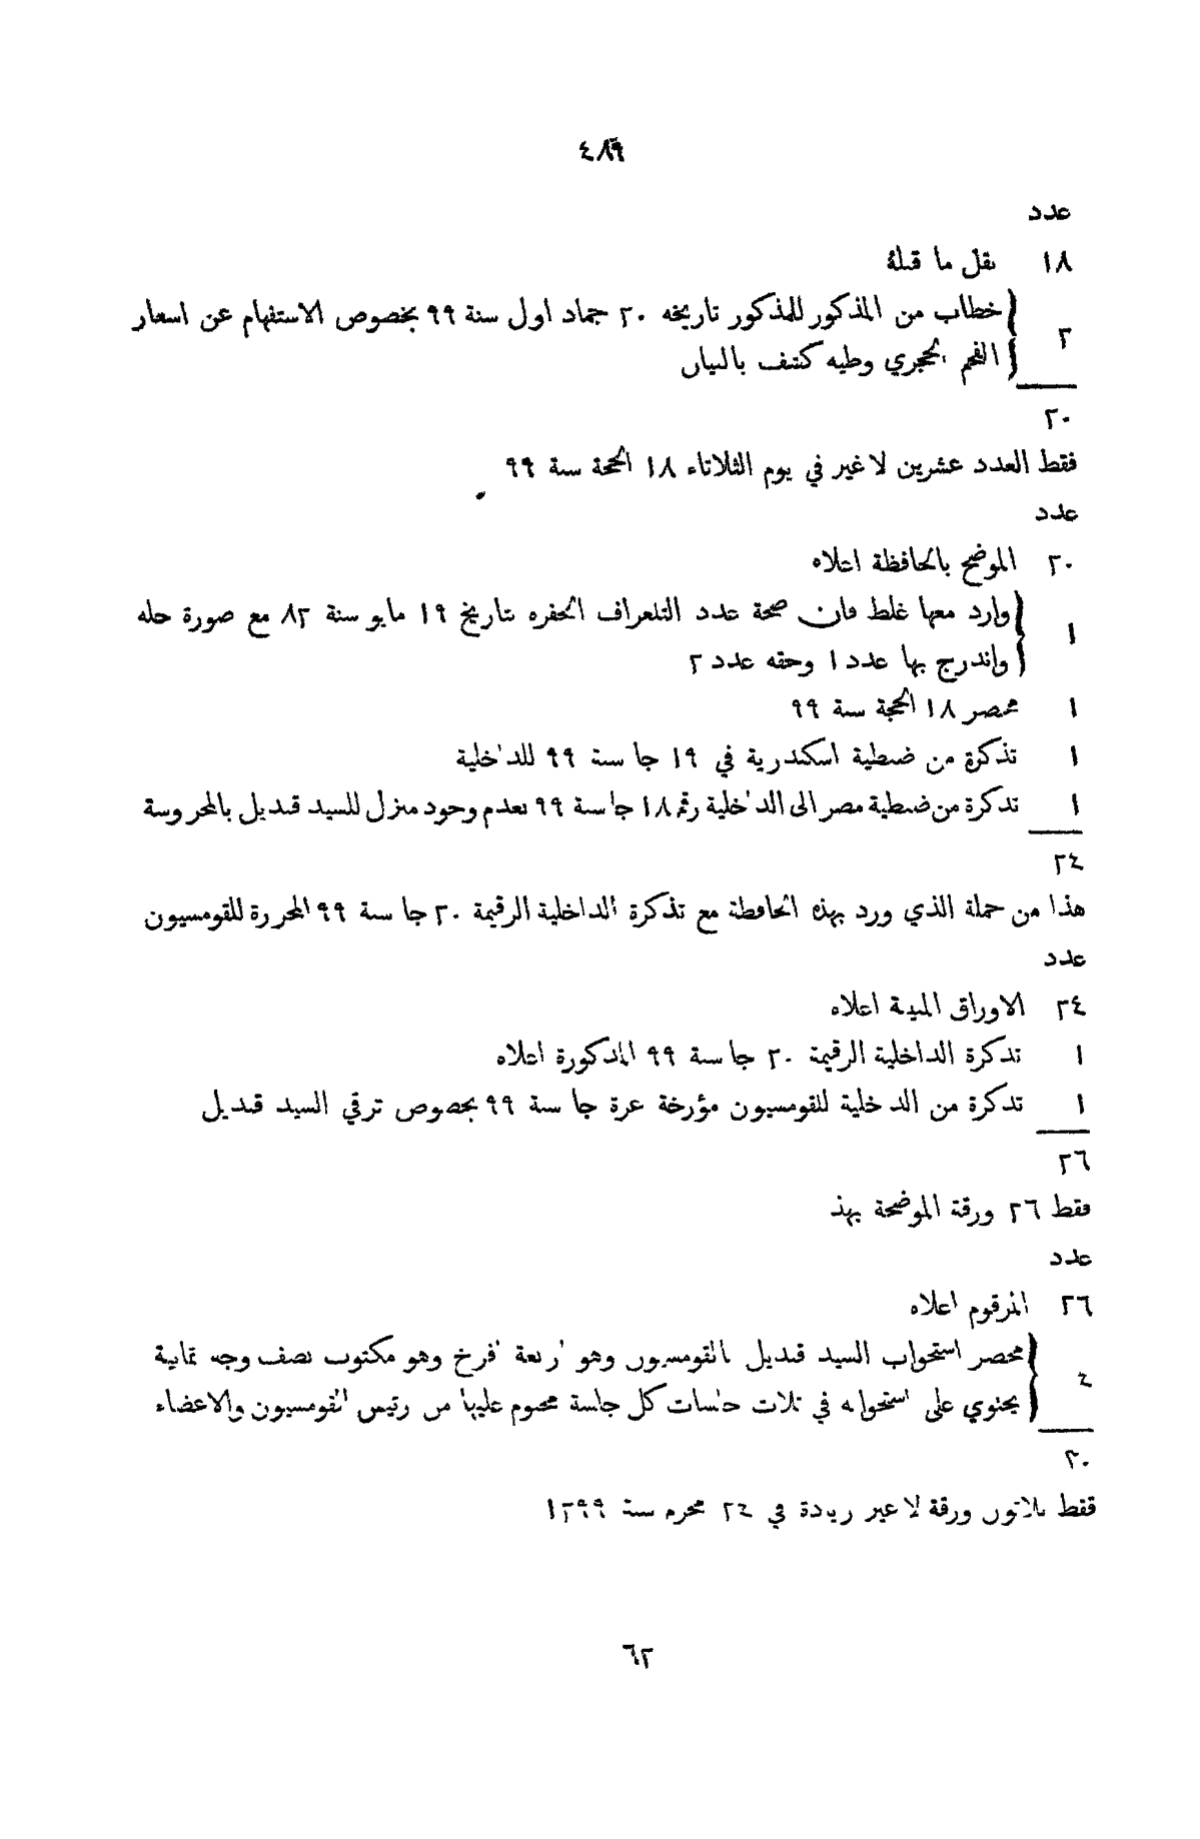 ٤٨٩
عدد
١٨ نقل ما قبله
٢ خطاب من المذكور للمذكور تاريخه ٢٠ جماد اول سنة ٩٩ بخصوص الاستفهام عن اسعار
الفحم الحجري وطيه كشف بالبيان
٢٠
فقط العدد عشرين لا غير في يوم الثلاثاء ١٨ الحجة سنة ٩٩
عدد
٢٠ الموضح بالحافظة اعلاه
١ وارد معها غلط فان صحة عدد التلغراف الجفره بتاريخ ١٩ مايو سنة ٨٢ مع صورة حله
واندرج بها عدد ١ وحقه عدد ٢
١ محضر ١٨ الحجة سنة ٩٩
١ تذكرة من ضبطية اسكندرية في ١٩ جا سنة ٩٩ للداخلية
١ تذكرة من ضبطية مصر الى الداخلية رقم ١٨ جا سنة ٩٩ بعدم وجود منزل للسيد قنديل بالمحروسة
٢٤
هذا من جملة الذي ورد بهذه الحافظة مع تذكرة الداخلية الرقيمة ٢٠ جا سنة ٩٩ المحررة للقومسيون
عدد
٢٤ الاوراق المبينة اعلاه
١ تذكرة الداخلية الرقيمة ٢٠ جا سنة ٩٩ المذكورة اعلاه
١ تذكرة من الداخلية للقومسيون مؤرخة غرة جا سنة ٩٩ بخصوص ترقي السيد قنديل
٢٦
فقط ٢٦ ورقة الموضحة بهذ
عدد
٢٦ المرقوم اعلاه
٤ محضر استجواب السيد قنديل بالقومسيون وهو اربعة افرخ وهو مكتوب نصف وجه ثمانية
يحتوي على استجوابه في ثلاث جلسات كل جلسة مختوم عليها من رئيس القومسيون والاعضاء
٣٠
فقط ثلاثون ورقة لا غير زيادة في ٢٤ محرم سنة ١٢٩٩
٦٢